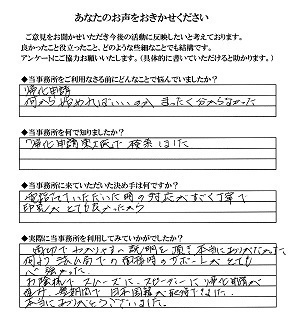 あなたのお声をおきかせください
ご意見をお聞かせいただき今後の活動に反映したいと考えております。
良かったこと役立ったこと、どのような些細なことでも結構です。
アンケートにご協力お願いいたします。(具体的に書いていただけると助かります。)
◆当事務所をご利用なさる前にどんなことで悩んでいましたか?
帰化申請
何から始めればいいのか まったく分からなかった
◆当事務所を何で知りましたか?
「帰化申請 東京 で 検索しました
◆当事務所に来ていただいた決め手は何ですか?
電話していただいた時の対応がすごく丁寧で
印象がとても良かったから
◆実際に当事務所を利用してみていかがでしたか?
親切でわかりやすい説明を頂き本当にありがたかった
何より法務局での面接時のサポートがとても
心強かった。
お陰様でスムーズに、スピーディーに帰化申請が
でき、最短で日本国籍が取得できました。
本当にありがとうございました。